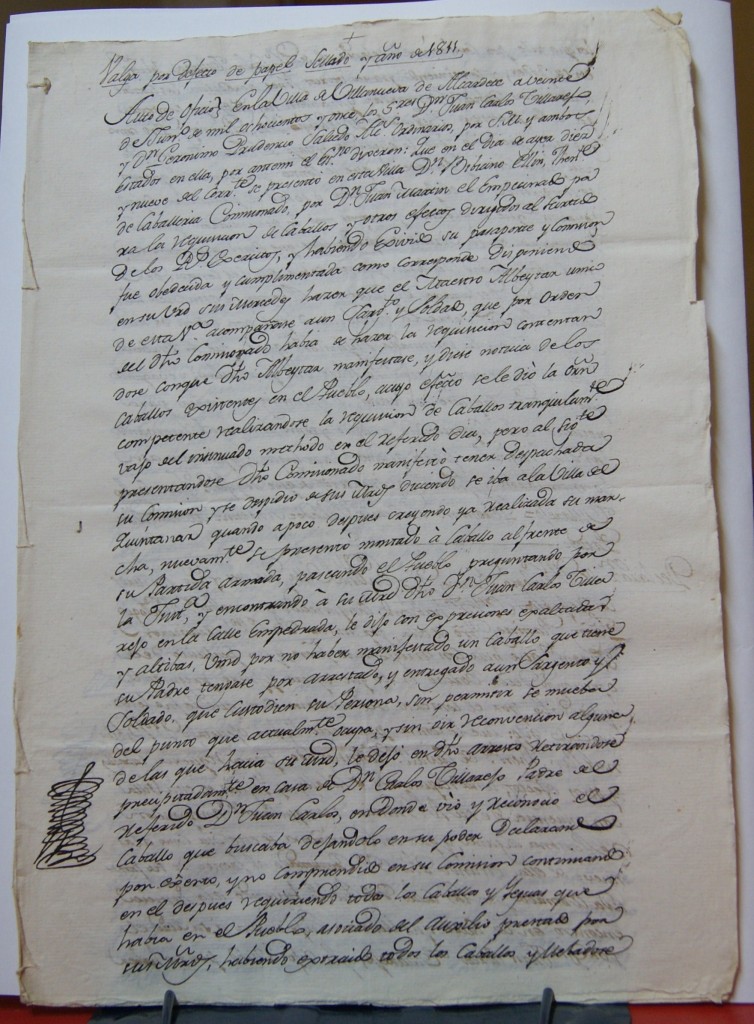 Valga por defecto de papel Sellado y año de 1811
Auto de oficio} En la Villa de Villanueva de Alcardete a veinte
de Jun.º de mil ochocientos y once los S.res D.n Juan Carlos Villarejo,
y D.n Geronimo Prudencio Salcedo Alc.s Ordinarios, por S.M. y ambos
Estados en ella, por antemi el Ess.no dixeron: que en el dia de ayer diez
y nueve del Corr.te se presentó en esta Villa D.n Bibiano Thente
de Caballeria Comisionado, por D.n Juan Martin el Empecinado pa
ra la requisicion de Caballos y otros efectos dirigidos al servicio
de los Exercitos, y habiendo Exivido su pasaporte y Comision
fue obedecida y Cumplimentada como corresponde disponiendo
en su Vrd sus mercedes hazer que el Maestro Albeytar unico
de esta V.ª acompañase a un Sarg.to y Soldado, que por orden
del dho Comisionado habia de hazer la requisicion contentan
dose con que dho Albeytar manifestase, y diese noticia de los
Caballos Existentes en el Pueblo, a cuyo efecto se le dió la Orn
competente realizandose la requisicion de Caballos tranquilam.te
vajo del insinuado methodo en el referido dia, pero al sig.te
presentandose dho Comisionado manifestó tener despachada
su Comision y se despidio de sus Mrds diciendo se iba a la Villa del
Quintanar quando a poco despues creyendo ya realizada su mar-
cha, nuevam.te se presentó montado à Caballo al frente de
su Partida armada, paseando el Pueblo, preguntando por
la Just.ª, y encontrando à su Mrd dho D.n Juan Carlos Villa
rejo en la Calle Empedrada, le dijo con expresiones exaltadas
y altibas, Vmd por no haber manifestado un Caballo que tiene
su Padre tengase por arrestado, y entregado a un Sargento y
Soldado, que Custodien su Persona, sin permitir se mueba
del punto que actualm.te ocupa, y sin oir reconvencion alguna
de las que hacia su Mrd, le dejó en dho arresto retirandose
precipitadam.te en casa de D.n Carlos Villarejo Padre del
referido D.n Juan Carlos, en donde vio y reconocio el
Caballo que buscaba dejandolo en su poder declarando
por Exento, y no Comprendido en su Comision continuando
en el despues requiriendo todos los Caballos y Yeguas que
habia en el Pueblo, asociado del Auxilio prestado por
sus Mrds, habiendo extraido todos los Caballos y llebadose